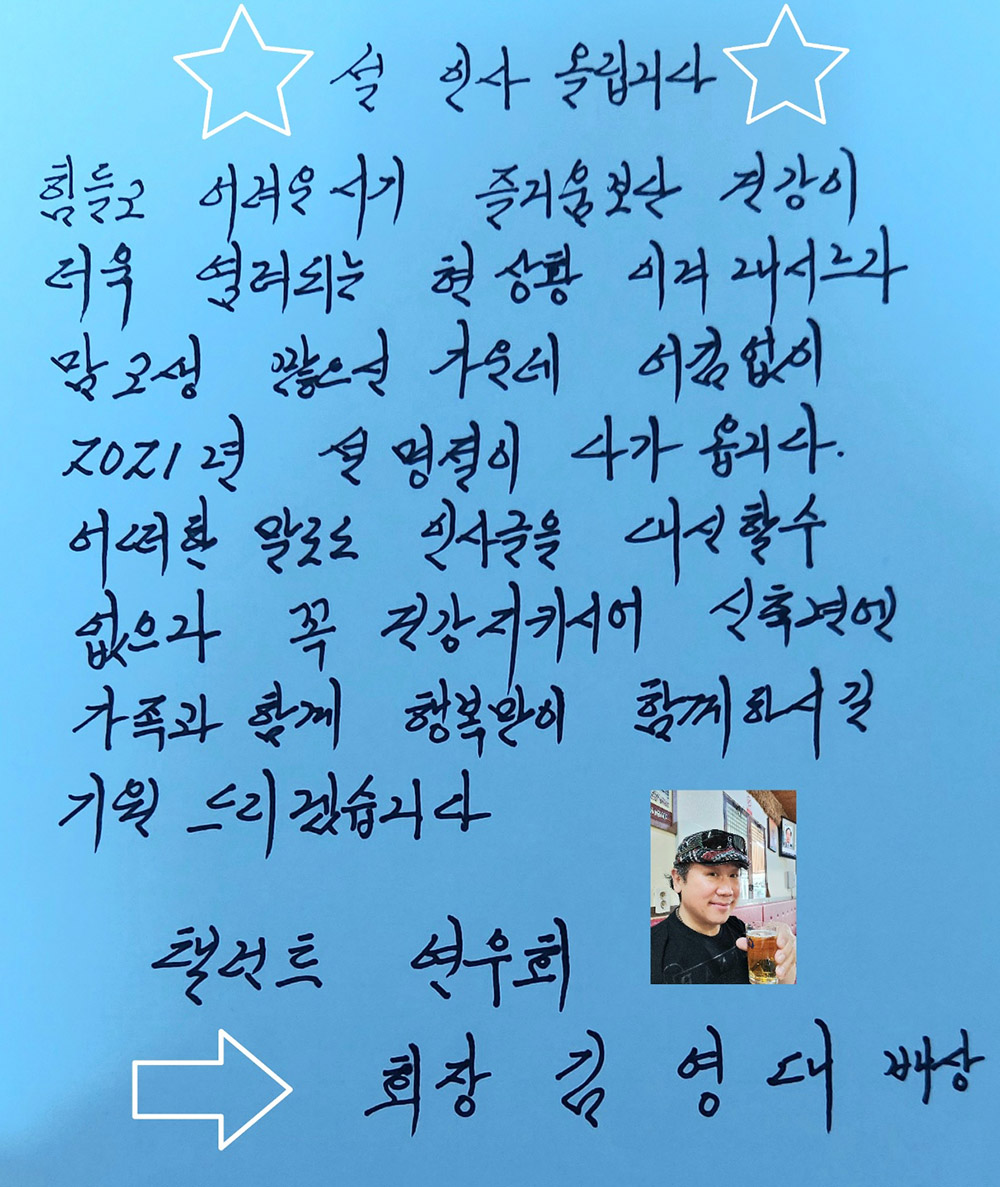 설 인사 올립니다
힘들고 어려운 시기 즐거움보단 건강이
더욱 염려되는 현 상황 이겨 내시느라
맘 고생 많으실 가운데 어김없이
2021년 설 명절이 다가 옵니다.
어떠한 말로도 인사글을 대신할수
없으나 꼭 건강지키시어 신축년엔
가족과 함께 행복만이 함께하시길
기원 드리겠습니다
탤런트 연우회
회장 김 영 대 배상